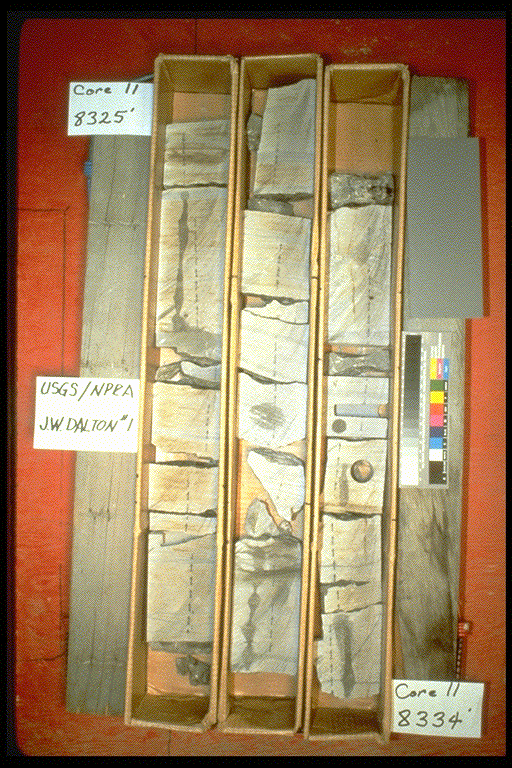 Core 11
8325'
USGS/NPRA
J.W. DALTON #1
Core 11
8334'